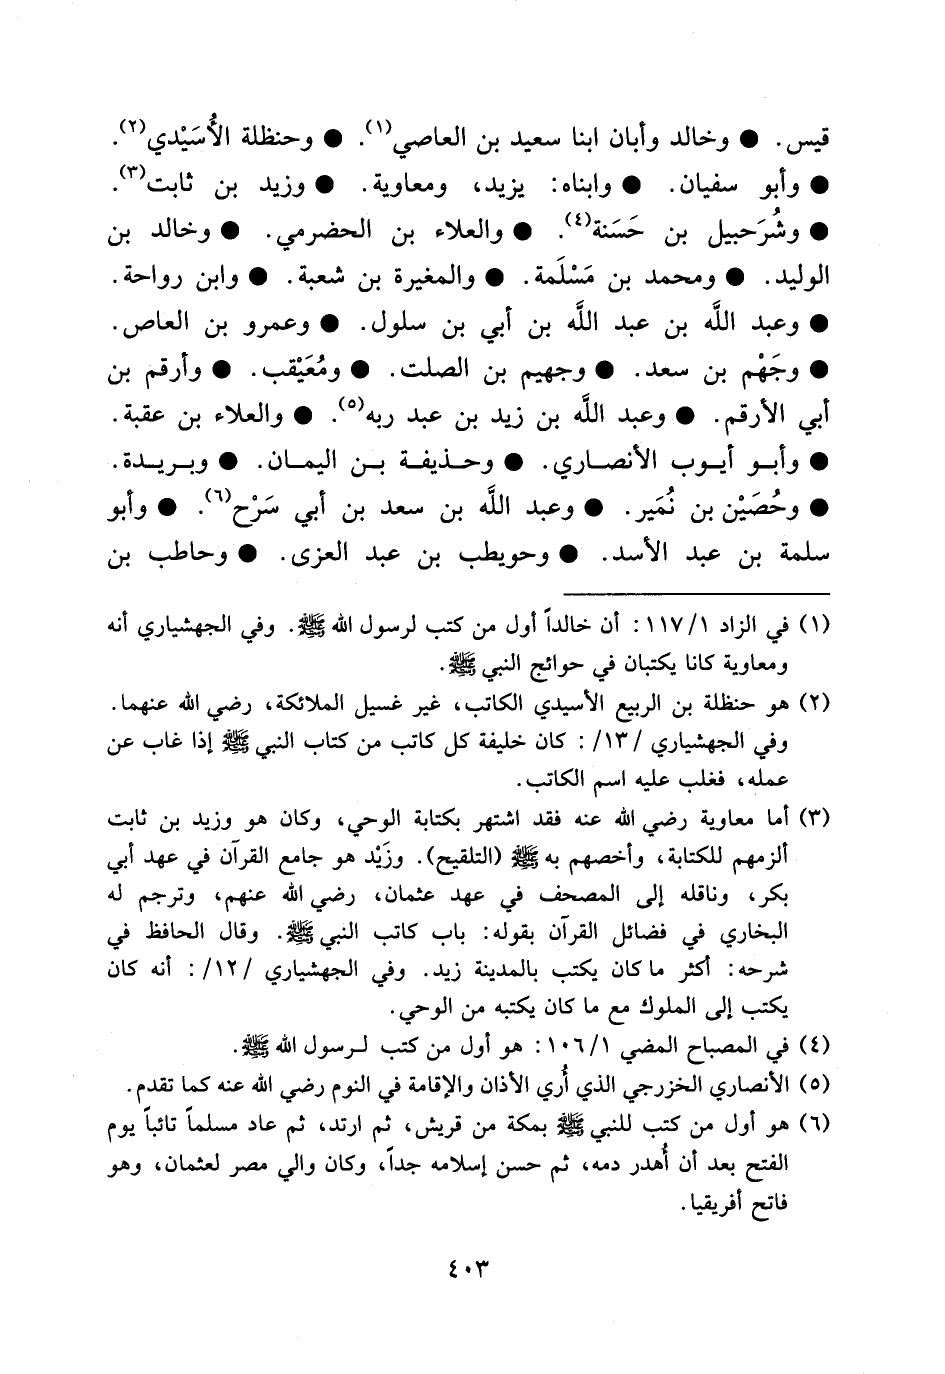 قيس. ● وخالد وأبان ابنا سعيد بن العاصي(١). ● وحنظلة الأُسَيْدي(٢).
● وأبو سفيان. ● وابناه: يزيد، ومعاوية. ● وزيد بن ثابت(٣).
● وشُرَحبيل بن حَسَنة(٤). ● والعلاء بن الحضرمي. ● وخالد بن
الوليد. ● ومحمد بن مَسْلَمة. ● والمغيرة بن شعبة. ● وابن رواحة.
● وعبد اللَّه بن عبد اللَّه بن أبي بن سلول. ● وعمرو بن العاص.
● وجَهْم بن سعد. ● وجهيم بن الصلت. ● ومُعَيْقب. ● وأرقم بن
أبي الأرقم. ● وعبد اللَّه بن زيد بن عبد ربه(٥). ● والعلاء بن عقبة.
● وأبـو أيـوب الأنصـاري. ● وحـذيفـة بـن اليمـان. ● وبـريـدة.
● وحُصَيْن بن نُمَير. ● وعبد اللَّه بن سعد بن أبي سَرْح(٦). ● وأبو
سلمة بن عبد الأسد. ● وحويطب بن عبد العزى. ● وحاطب بن
(١) في الزاد ١١٧/١: أن خالداً أول من كتب لرسول الله ﷺ. وفي الجهشياري أنه
ومعاوية كانا يكتبان في حوائج النبي ﷺ.
(٢) هو حنظلة بن الربيع الأسيدي الكاتب، غير غسيل الملائكة، رضي الله عنهما.
وفي الجهشياري /١٣/: كان خليفة كل كاتب من كتاب النبي ﷺ إذا غاب عن
عمله، فغلب عليه اسم الكاتب.
(٣) أما معاوية رضي الله عنه فقد اشتهر بكتابة الوحي، وكان هو وزيد بن ثابت
ألزمهم للكتابة، وأخصهم به ﷺ (التلقيح). وزَيْد هو جامع القرآن في عهد أبي
بكر، وناقله إلى المصحف في عهد عثمان، رضي الله عنهم، وترجم له
البخاري في فضائل القرآن بقوله: باب كاتب النبي ﷺ. وقال الحافظ في
شرحه: أكثر ما كان يكتب بالمدينة زيد. وفي الجهشياري /١٢/: أنه كان
يكتب إلى الملوك مع ما كان يكتبه من الوحي.
(٤) في المصباح المضي ١٠٦/١: هو أول من كتب لـرسول الله ﷺ.
(٥) الأنصاري الخزرجي الذي أُري الأذان والإقامة في النوم رضي الله عنه كما تقدم.
(٦) هو أول من كتب للنبي ﷺ بمكة من قريش، ثم ارتد، ثم عاد مسلماً تائباً يوم
الفتح بعد أن أُهدر دمه، ثم حسن إسلامه جداً، وكان والي مصر لعثمان، وهو
فاتح أفريقيا.
٤٠٣